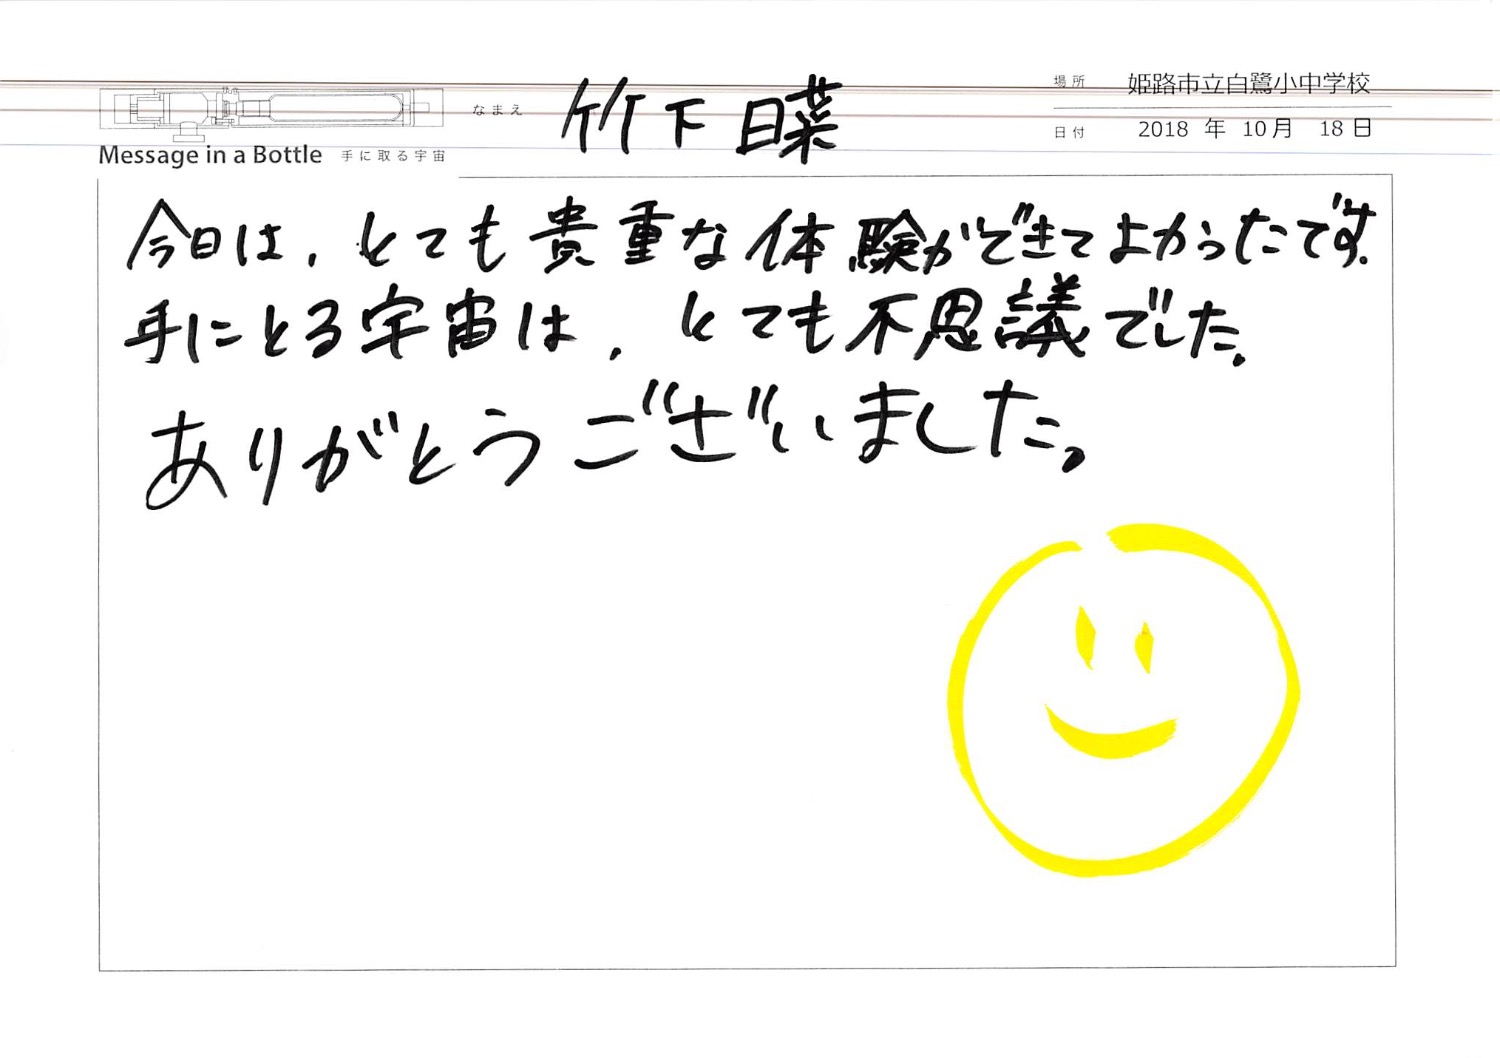 なまえ 竹下日菜
場所 姫路市立白鷺小中学校
日付 2018 年 10 月 18 日
Message in a Bottle 手に取る宇宙
今日は、とても貴重な体験ができてよかったです。
手にとる宇宙は、とても不思議でした。
ありがとうございました。